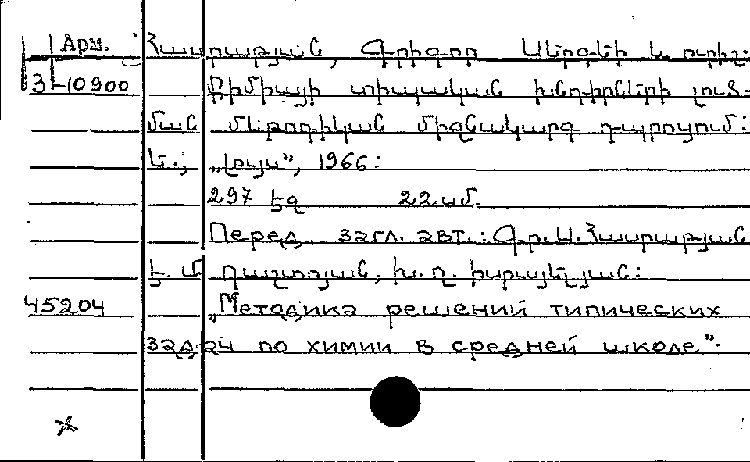 Арм. Հասրաթյան, Գրիգոր Սերգեի և ուրիշ.
3-10900 Քիմիայի տիպական խնդիրների լուծ-
ման մեթոդիկան միջնակարգ դպրոցում:
Ե., „Լույս", 1966:
297 էջ 22 սմ.
Перед загл. авт.: Գր.Ս.Հասրաթյան
Է. Մ խ. Ղ. իսրայելյան:
45204 „Методика решений типических
задач по химии в средней школе".